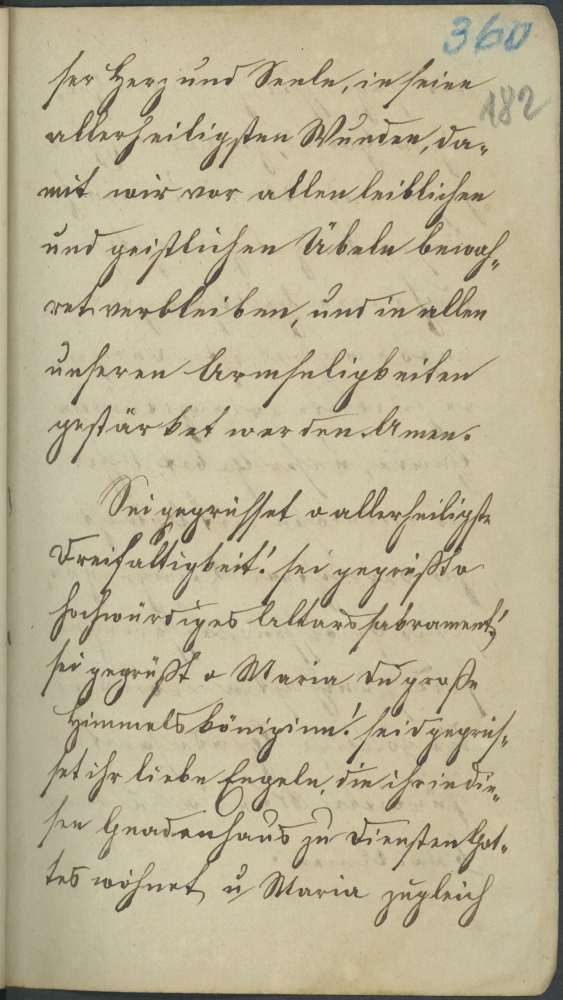 360
182
ser Herz und Seele, in seine
allerheiligsten Wunden, da-
mit wir vor allen leiblichen
und geistlichen Übeln bewah-
ret verbleiben, und in allen
unseren Armseligkeiten
gestärket werden. Amen.
Sei gegrüsset o allerheiligste
Dreifaltigkeit! sei gegrüßt o
hochwürdiges Altarssakrament!
sei gegrüßt o Maria du große
Himmelsköniginn! seid gegrüs-
set ihr liebe Engeln, die ihr in die-
sen Gnadenhaus zu Diensten Got-
tes wohnet, u Maria zugleich